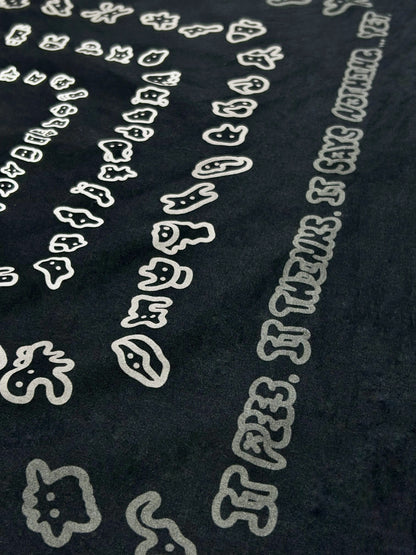 IT SEES. IT THINKS. IT SAYS NOTHING... YET